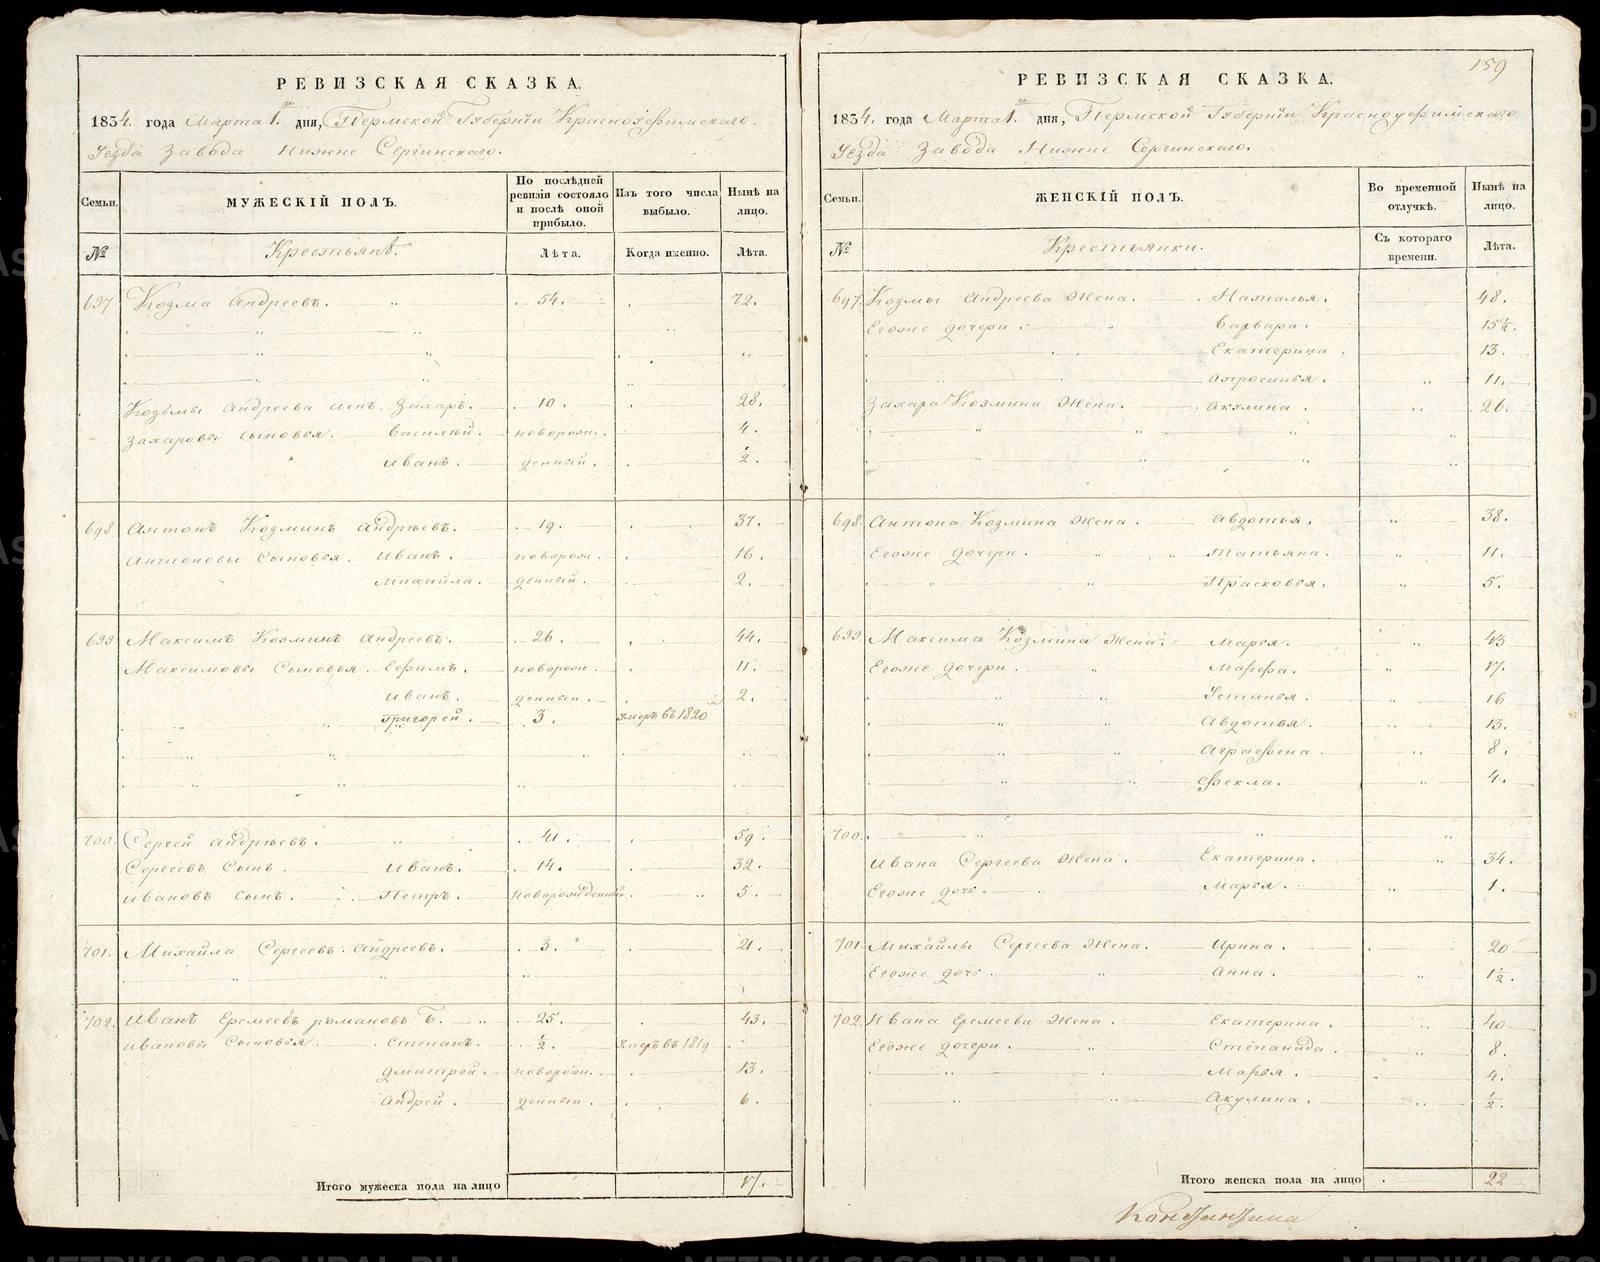 РЕВИЗСКАЯ СКАЗКА.
1834. года Марта 1. дня, Пермской Губернïи Красноуфимскаго.
Уезда Завода Нижне Сергинскаго.
Семьи.
МУЖЕСКІЙ ПОЛЪ.
По послѣдней ревизіи состояло и послѣ оной прибыло.
Изъ того числа выбыло.
Нынѣ на лицо.
№
Крестьянѣ.
Лѣта.
Когда именно.
Лѣта.
697 Козма Андреевъ. 54. 72.
Козьмы Андреева сынъ. Захаръ. 10. 28.
Захаровы сыновья. Василий. новорож. 4.
Иванъ. денный. ½.
698 Антонъ Козминъ Андрѣевъ. 19. 37.
Антоновы Сыновья. Иванъ. новорож. 16.
Михайла. денный. 2.
699 Максимъ Козминъ Андреевъ. 26. 44.
Максимовы Сыновья. Ефимъ. новорож. 11.
Иванъ. денныи. 2.
Григорей. 3. умеръ въ 1820
700. Сергей Андрѣевъ. 41. 59.
Сергеевъ Сынъ. Иванъ. 14. 32.
Ивановъ сынъ. Петръ. новорожденный. 5.
701. Михайла Сергеевъ. Андреевъ. 3. 21.
702. Иванъ Еремеевъ романовъ Б. 25. 43.
Ивановы Сыновья. Степанъ. ½. умеръ въ 1819
Дмитрей. новорож. 13.
Андрей. денныи. 6.
Итого мужеска пола на лицо 17.
159
РЕВИЗСКАЯ СКАЗКА.
1834. года Марта 1. дня, Пермской Губернïи Красноуфимскаго
Уезда Завода Нижне Сергинскаго.
Семьи.
ЖЕНСКІЙ ПОЛЪ.
Во временной отлучкѣ.
Нынѣ на лицо.
№
Крестьянки.
Съ котораго времени.
Лѣта.
697. Козмы Андреева Жена. Наталья. 48.
Егоже дочери. Варвара. 15½.
Екатерина. 13.
Апросинья. 11.
Захара Козмина Жена. Акулина. 26.
698. Антона Козмина Жена. Авдотья. 38.
Егоже дочери. Татьяна. 11.
Прасковья. 5.
699. Максима Козмина Жена. Марья. 43
Егоже дочери. Марфа. 17.
Устинья. 16
Авдотья. 13.
Аграфена. 8.
Фекла. 4.
700.
Ивана Сергеева Жена. Екатерина. 34.
Егоже дочь. Марья. 1.
701. Михайлы Сергеева Жена. Ирина. 20
Егоже дочь. Анна. 1½.
702. Ивана Еремеева Жена. Екатерина. 40
Егоже дочери. Степанида. 8.
Марья. 4.
Акулина. ½.
Итого женска пола на лицо 22